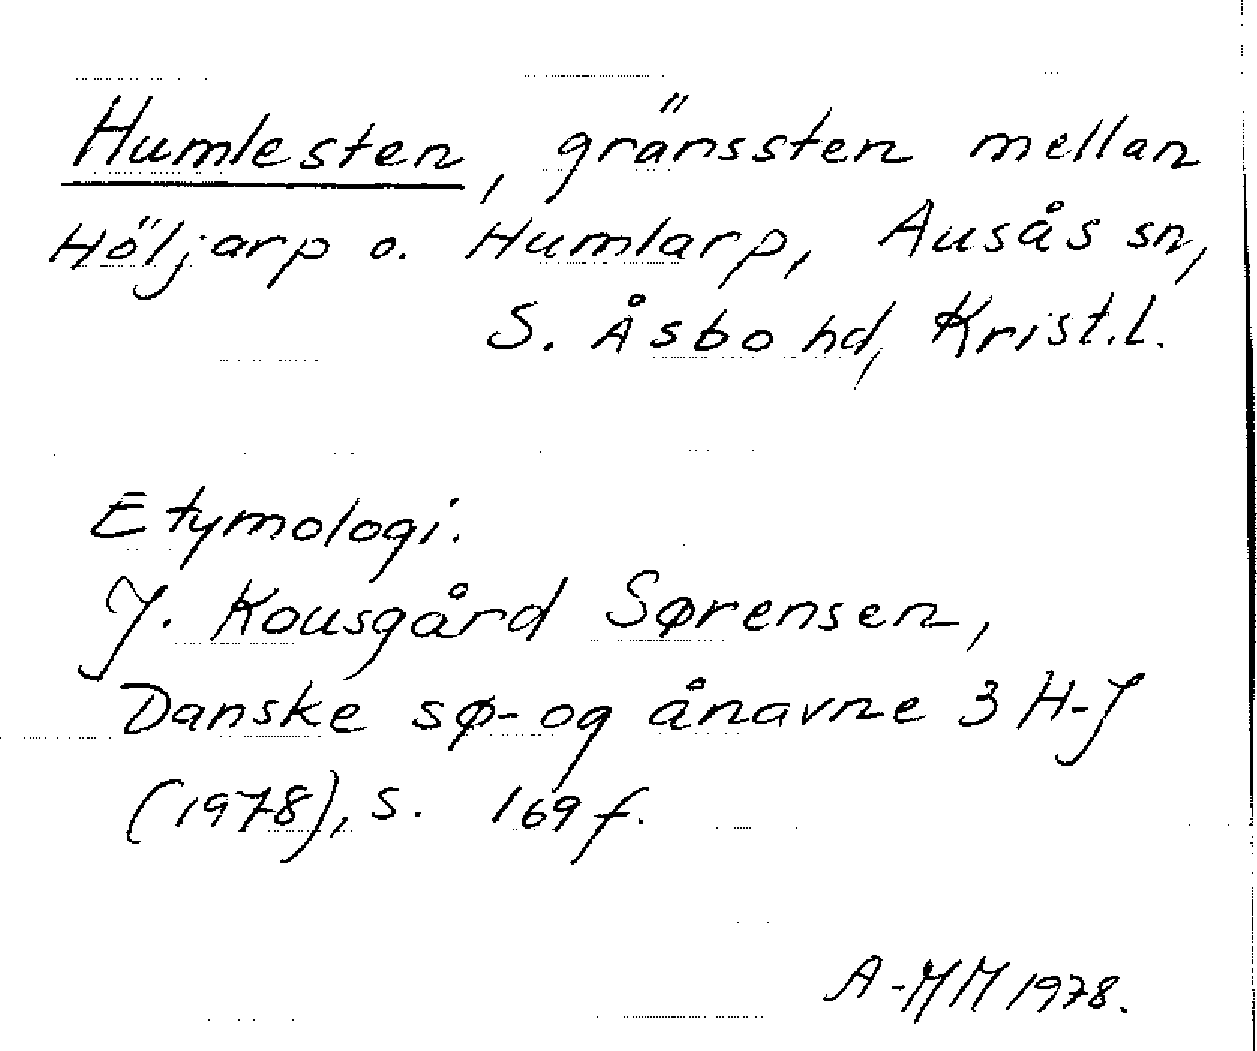 Humlesten, gränssten mellan
Höljarp o. Humlarp, Ausås sn,
S. Åsbo hd, Krist.l.
Etymologi.
J. Kousgård Sørensen,
Danske sø- og ånavne 3 H-J
(1978), s. 169 f.
A-MM 1978.